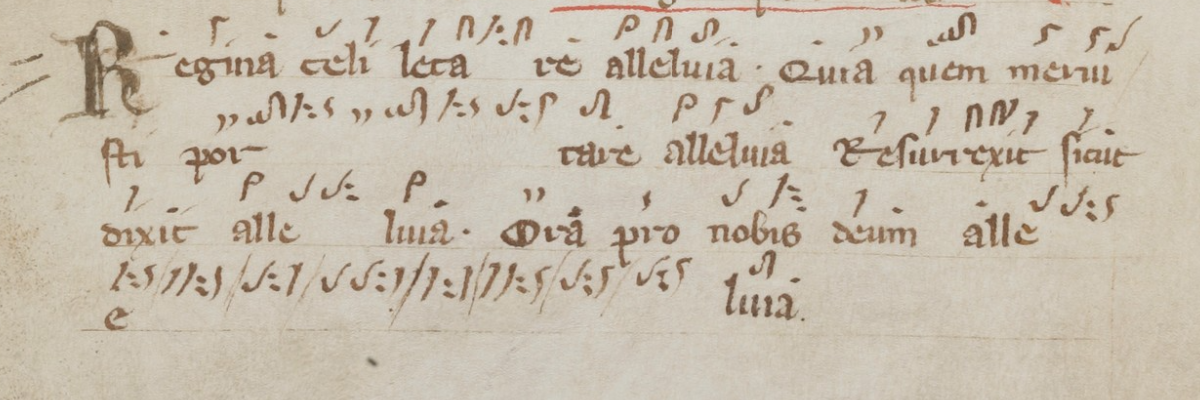 Regina celi leta re alleluia · Quia quem merui
sti por tare alleluia Resurrexit sicut
dixit alle luia · Ora pro nobis deum alle
e luia.